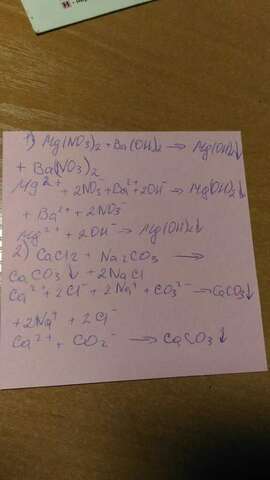 1) Mg(NO3)2 + Ba(OH)2 → Mg(OH)2↓
+ Ba(NO3)2
Mg2+ + 2NO3 + Ba2+ + 2OH- → Mg(OH)2↓
+ Ba2+ + 2NO3-
Mg2+ + 2OH- → Mg(OH)2↓
2) CaCl2 + Na2CO3 →
CaCO3↓ + 2NaCl
Ca2+ + 2Cl- + 2Na+ + CO32- → CaCO3↓
+ 2Na+ + 2Cl-
Ca2+ + CO2- → CaCO3↓